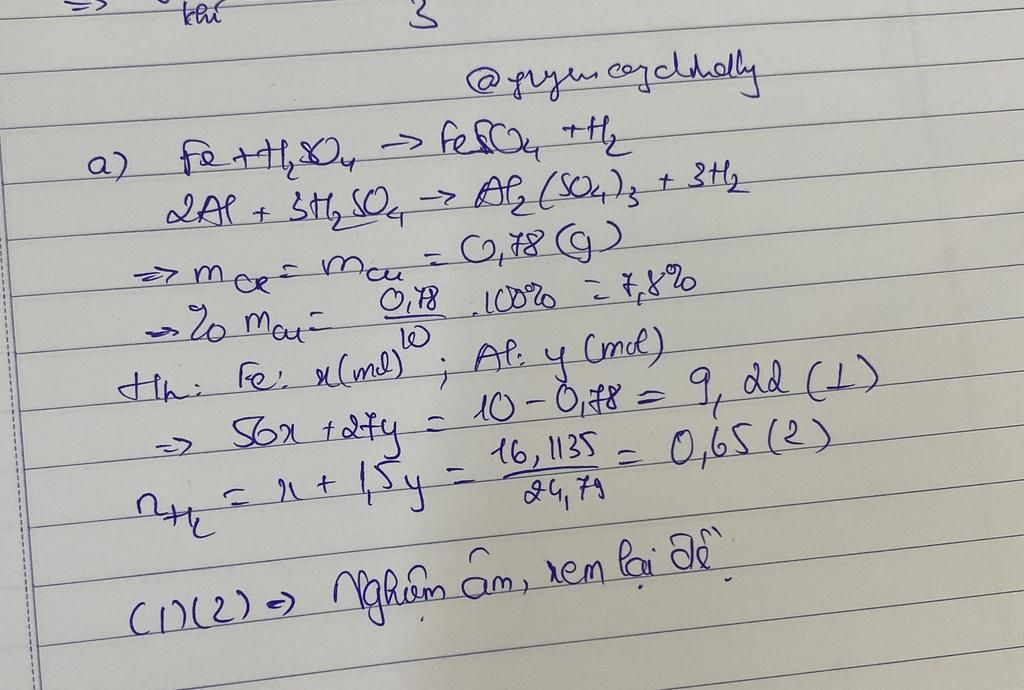 => khí 3
a) Fe + H₂SO₄ → FeSO₄ + H₂
2Al + 3H₂SO₄ → Al₂(SO₄)₃ + 3H₂
=> m = mCu = 0,78 (g)
→ % mCu = 0,78/10 . 100% = 7,8%
hh: Fe: x(mol) ; Al: y (mol)
=> 56x + 27y = 10 - 0,78 = 9,22 (1)
nH₂ = x + 1,5y = 16,1135/24,79 = 0,65 (2)
(1)(2) => Nghiệm âm, xem lại đề.